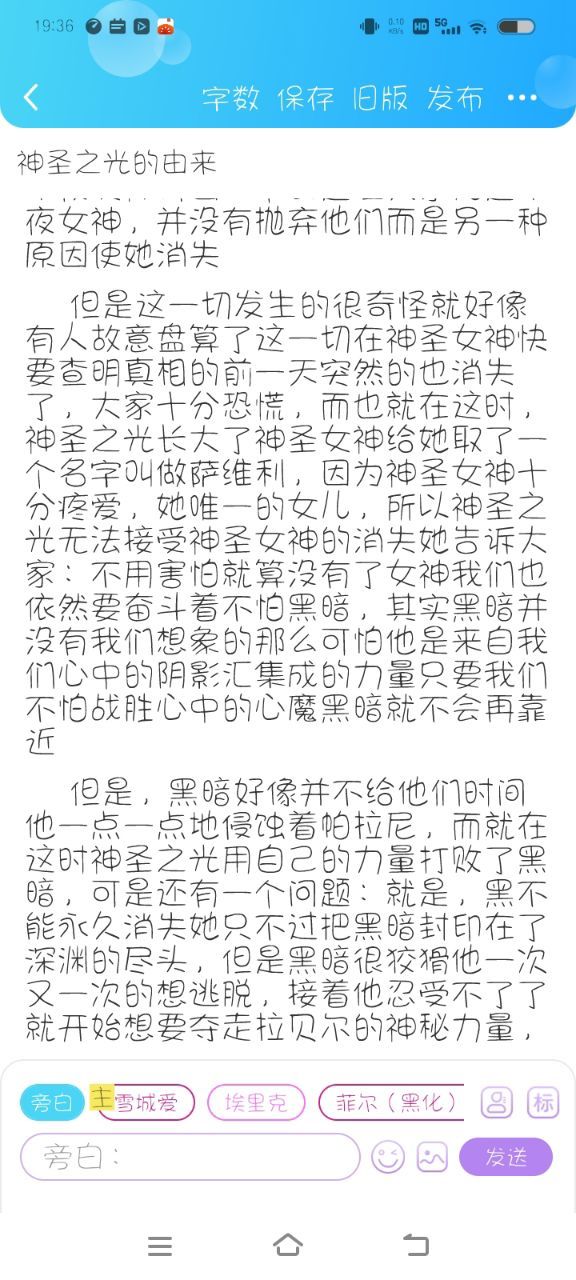 19:36
0.10
KB/s
HD
5G
字数 保存 旧版 发布
神圣之光的由来
夜女神，并没有抛弃他们而是另一种
原因使她消失
但是这一切发生的很奇怪就好像
有人故意盘算了这一切在神圣女神快
要查明真相的前一天突然的也消失
了，大家十分恐慌，而也就在这时，
神圣之光长大了神圣女神给她取了一
个名字叫做萨维利，因为神圣女神十
分疼爱，她唯一的女儿，所以神圣之
光无法接受神圣女神的消失她告诉大
家：不用害怕就算没有了女神我们也
依然要奋斗着不怕黑暗，其实黑暗并
没有我们想象的那么可怕他是来自我
们心中的阴影汇集成的力量只要我们
不怕战胜心中的心魔黑暗就不会再靠
近
但是，黑暗好像并不给他们时间
他一点一点地侵蚀着帕拉尼，而就在
这时神圣之光用自己的力量打败了黑
暗，可是还有一个问题：就是，黑不
能永久消失她只不过把黑暗封印在了
深渊的尽头，但是黑暗很狡猾他一次
又一次的想逃脱，接着他忍受不了了
就开始想要夺走拉贝尔的神秘力量，
旁白 主 雪城爱 埃里克 菲尔（黑化） 标
旁白： 发送